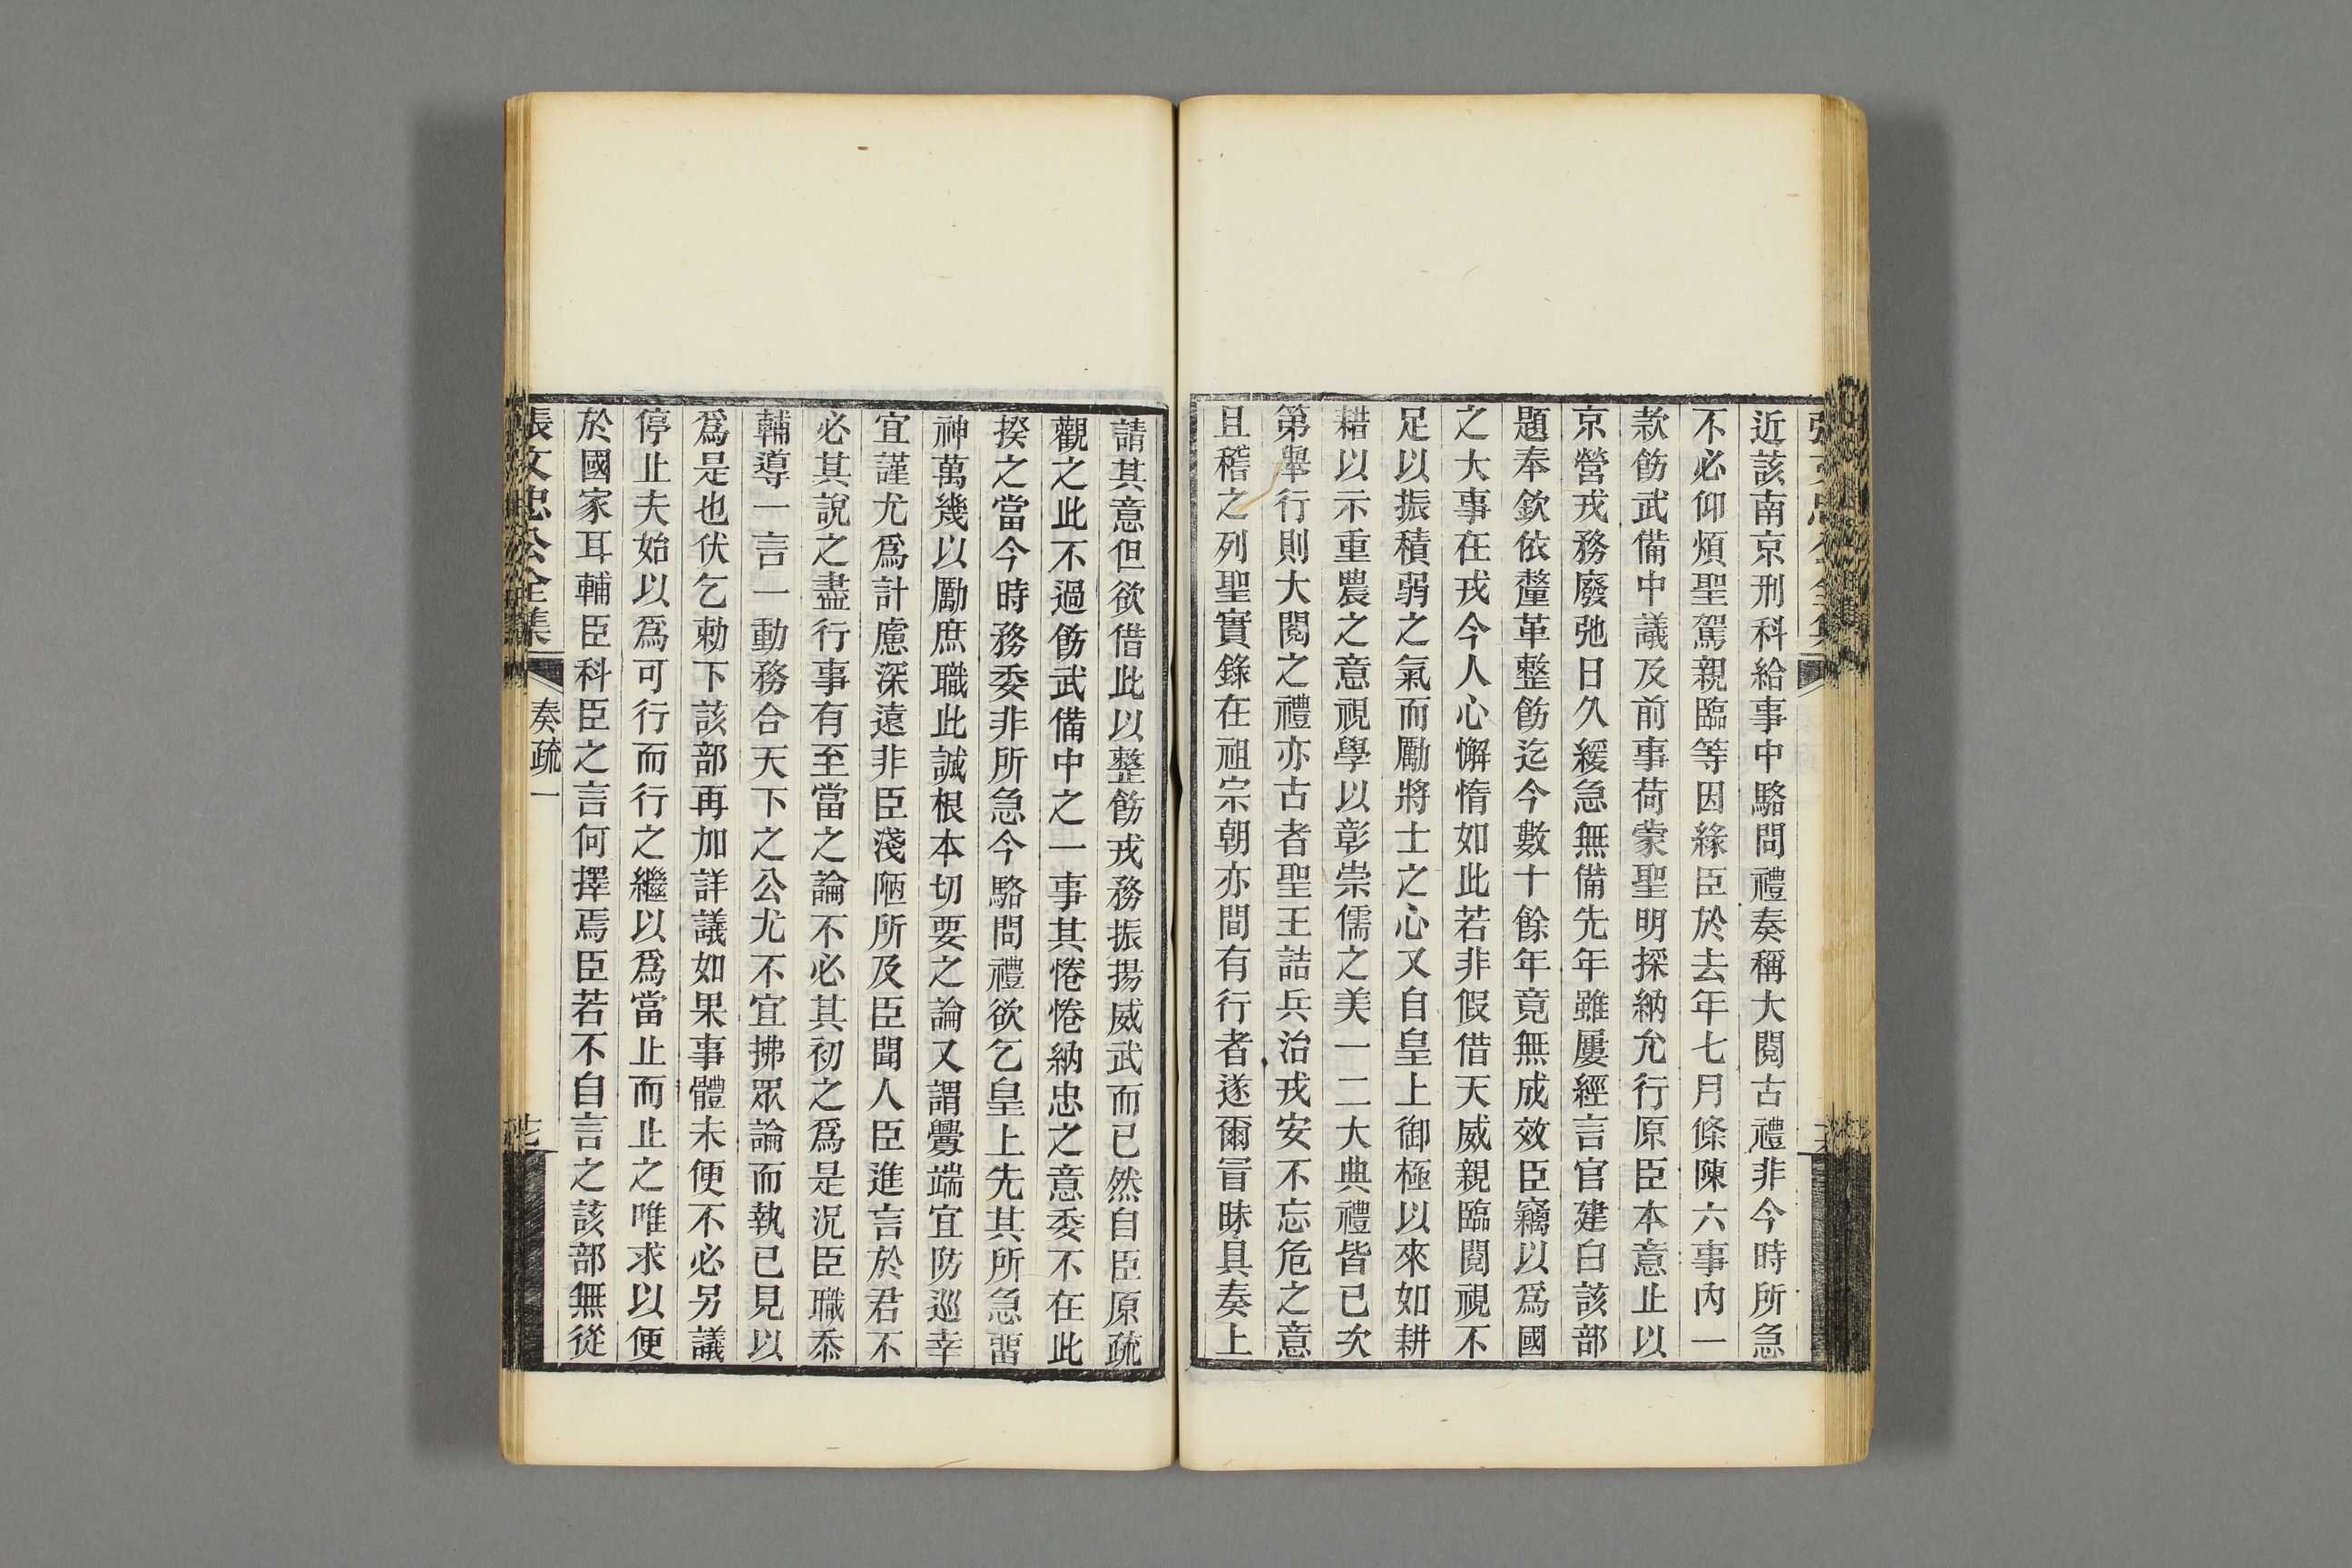 近該南京刑科給事中駱問禮奏稱大閱古禮非今時所急
不必仰煩聖駕親臨等因緣臣於去年七月條陳六事內一
款飭武備中議及前事荷蒙聖明採納允行原臣本意止以
京營戎務廢弛日久緩急無備先年雖屢經言官建白該部
題奉欽依釐革整飭迄今數十餘年竟無成效臣竊以爲國
之大事在戎今人心懈惰如此若非假借天威親臨閱視不
足以振積弱之氣而勵將士之心又自皇上御極以來如耕
耤以示重農之意視學以彰崇儒之美一二大典禮皆已次
第舉行則大閱之禮亦古者聖王詰兵治戎安不忘危之意
且稽之列聖實錄在祖宗朝亦間有行者遂爾冒昧具奏上
請其意但欲借此以整飭戎務振揚威武而已然自臣原疏
觀之此不過飭武備中之一事其惓惓納忠之意委不在此
揆之當今時務委非所急今駱問禮欲乞皇上先其所急畱
神萬幾以勵庶職此誠根本切要之論又謂釁端宜防巡幸
宜謹尤爲計慮深遠非臣淺陋所及臣聞人臣進言於君不
必其說之盡行事有至當之論不必其初之爲是況臣職忝
輔導一言一動務合天下之公尤不宜拂眾論而執已見以
爲是也伏乞勅下該部再加詳議如果事體未便不必另議
停止夫始以爲可行而行之繼以爲當止而止之唯求以便
於國家耳輔臣科臣之言何擇焉臣若不自言之該部無從
張文忠公全集 奏疏一